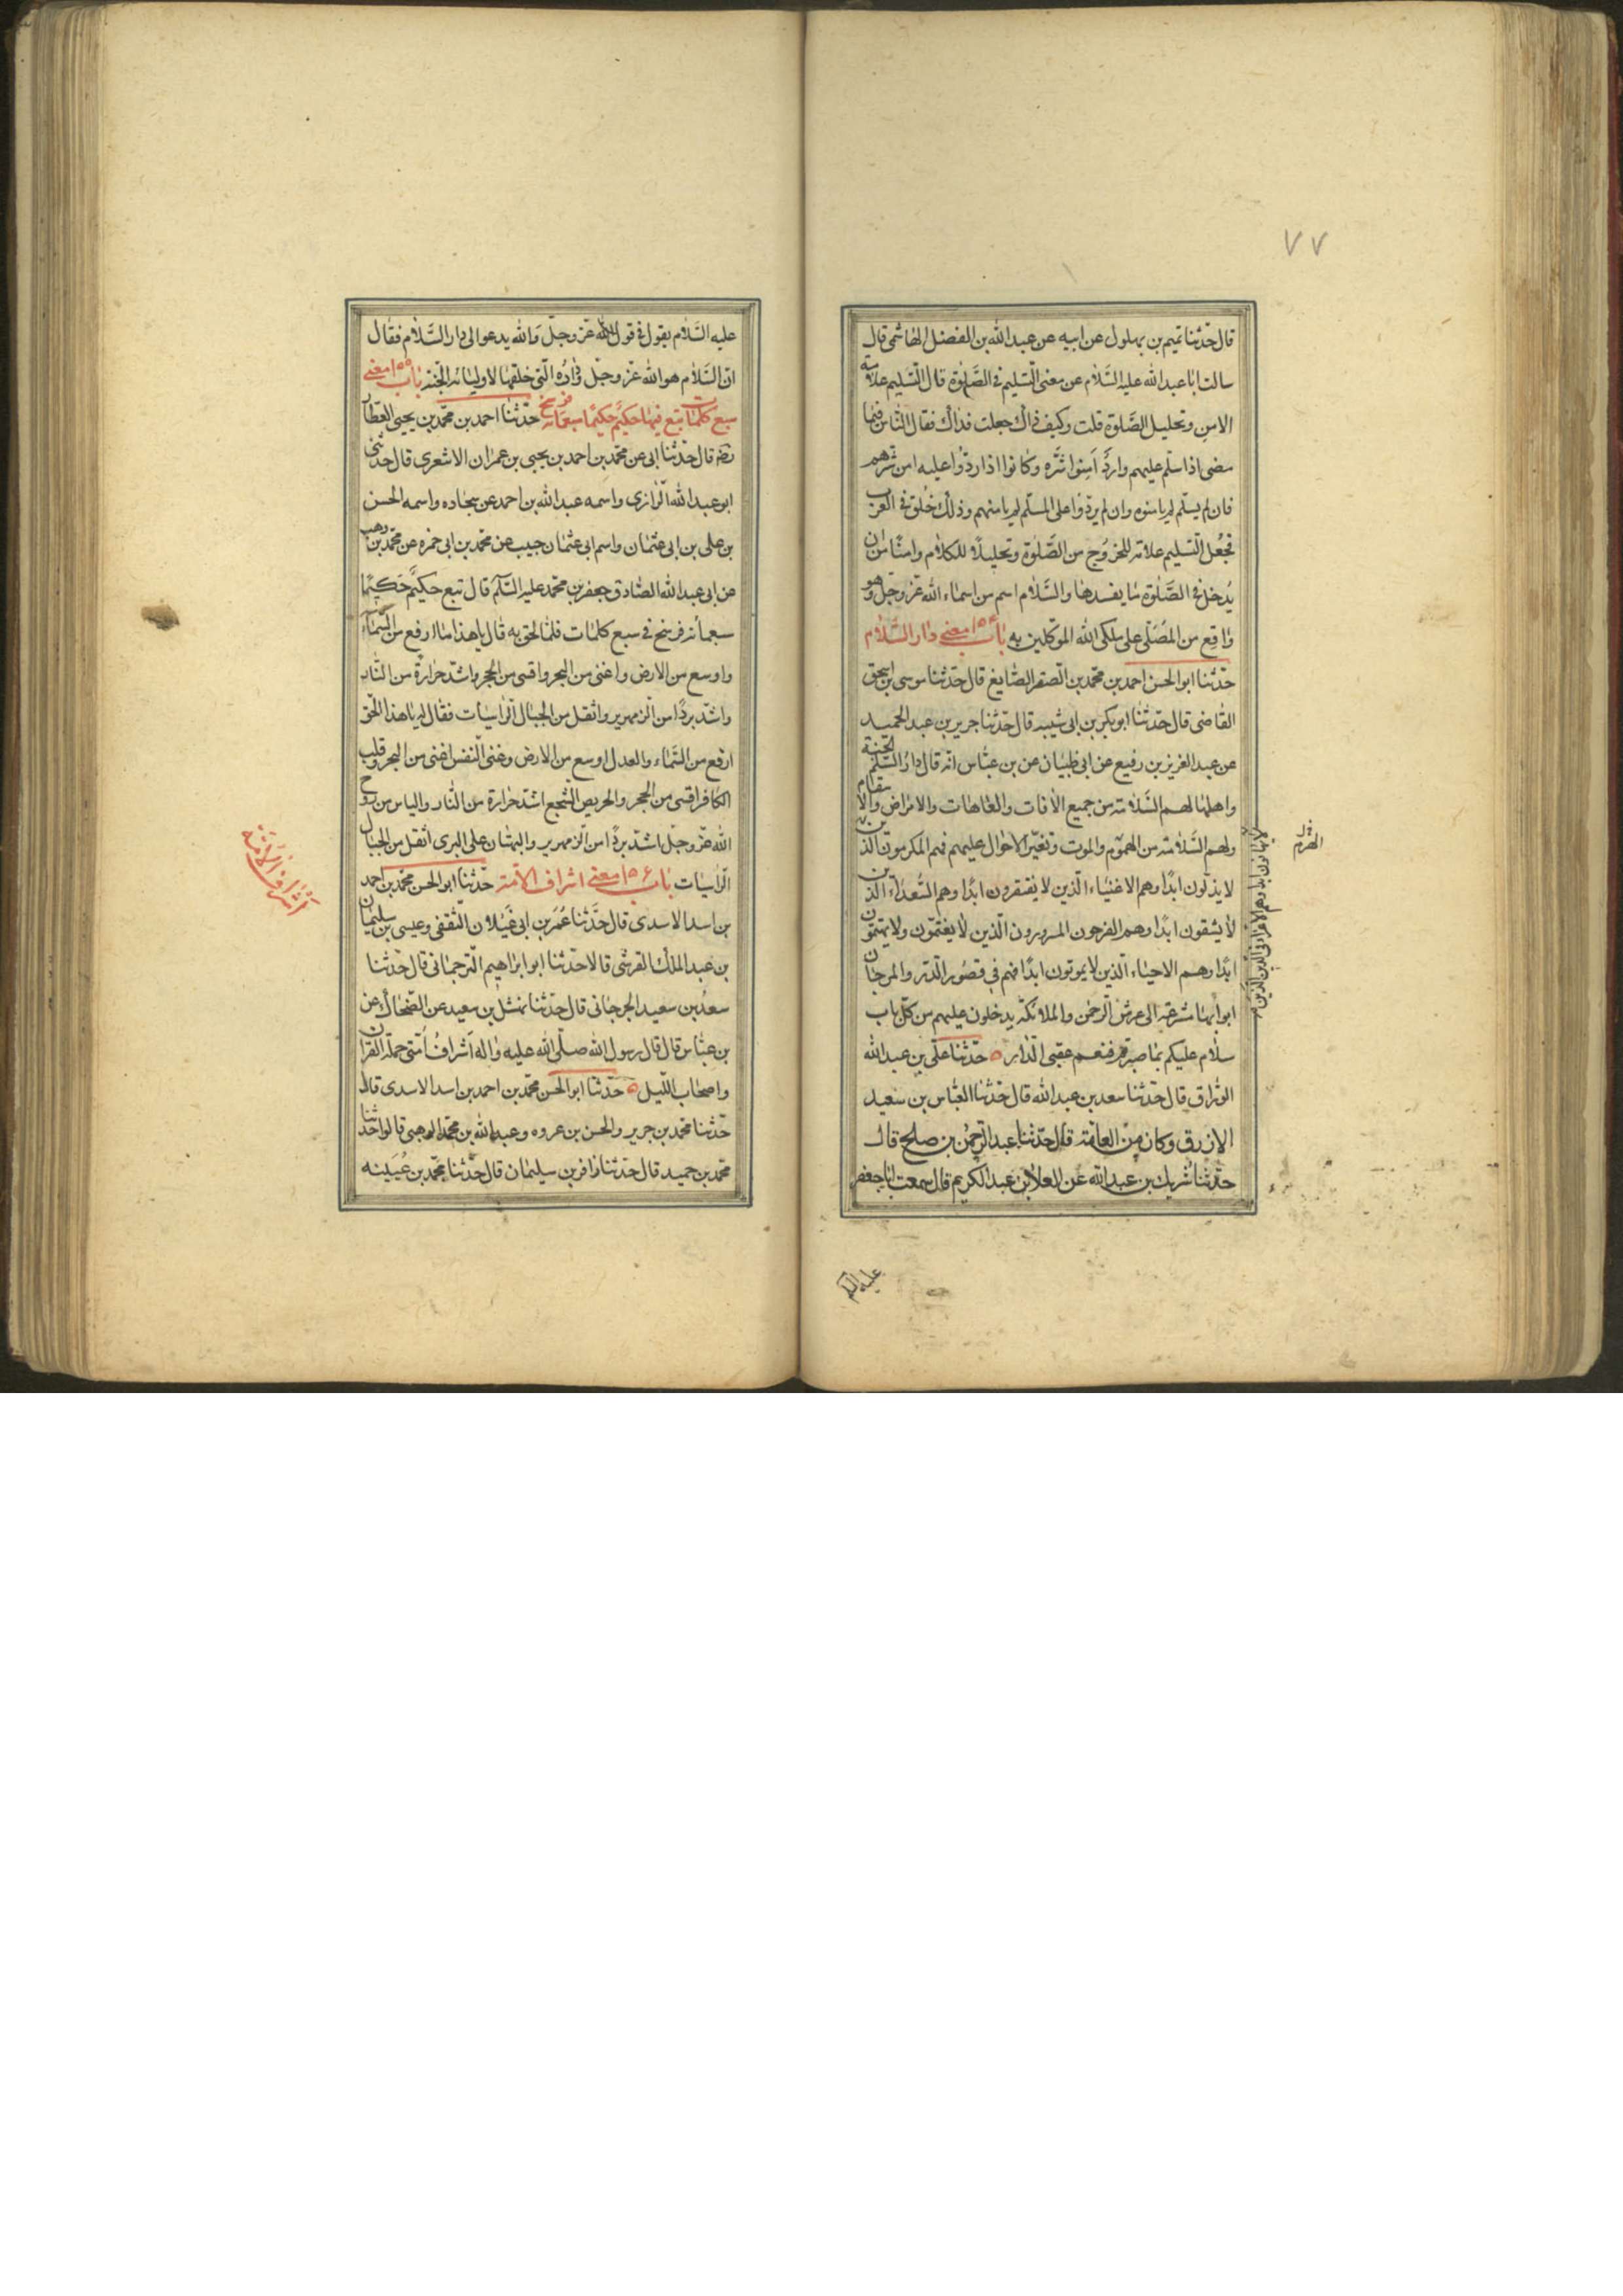 ٧٧
قال حدّثنا تميم بن بهلول عن ابيه عن عبد الله بن الفضل الهاشمى قال
سالت ابا عبد الله عليه السَّلام عن معنى التسليم فى الصَّلوة قال التسليم علامة
الامن وتحليل الصَّلوة قلت وكيف ذاك جعلت فداك فقال كان الناس فيما
مضى اذا سلّم عليهم وارد اَمِنوا شرّه وكانوا اذا ردّوا عليه امن شرهم
فان لم يسلّم لم يامنوه وان لم يردّوا على المسلّم لم يامنهم وذلك خُلق فى العرب
فجُعل التسليم علامة للخروج من الصَّلوة وتحليلاً للكلام وامنًا من ان
يُدخل فى الصَّلوة ما يفسدها والسَّلام اسم من اسماء الله عزّ وجلّ وهو
واقع من المُصَلّى على ملكى الله الموكلين به باب ١٥٤ معنى دار السَّلام
حدّثنا ابو الحسن احمد بن محمّد بن الصقر الصّايغ قال حدّثنا موسى بن اسحق
القاضى قال حدّثنا ابو بكر بن ابى شيبه قال حدّثنا جرير بن عبد الحميد
عن عبد العزيز بن رفيع عن ابى ظبيان عن بن عبّاس انّه قال دارُ السّلم الجنة
واهلها لهم السَّلامة من جميع الافات والعاهات والامراض والاسقام
ولهم السّلامة من الهموم والموت وتغيّر الاحوال عليهم فهم المكرمون الذين
لا يذلّون ابدًا وهم الاغنياء الّذين لا يفتقرون ابدًا وهم السُّعداء الّذين
لا يشقون ابدًا وهم الفرحون المسرورون الّذين لا يغتمّون ولا يهتمّون
ابدًا وهم الاحياء الّذين لا يموتون ابدًا فهم فى قصُور الدّر والمرجان
ابوابها مشرعة الى عرش الرّحمن والملائكة يدخلون عليهم من كلّ باب
سلام عليكم بما صبرتم فنعم عقبى الدّار حدّثنا علىّ بن عبد الله
الورّاق قال حدّثنا سعد بن عبد الله قال حدّثنا العبّاس بن سعيد
الازرق وكان من العامّة قال حدّثنا عبد الرّحمن بن صلح قال
حدّثنا شريك بن عبد الله عن العلا بن عبد الكريم قال سمعت ابا جعفر
والهرم
عليه السّلم
عليه السَّلام يقول فى قول الله عزّ وجلّ والله يدعو الى دار السَّلام فقال
انّ السَّلام هو الله عزّ وجلّ وداره الّتى خلقها لاوليائه الجنّة باب ١٥٥ معنى
سبع كلمات تبع فيها حكيم حكيمًا سبعمائة فرسخ حدّثنا احمد بن محمّد بن يحيى العطّار
رضه قال حدّثنا ابى عن محمّد بن احمد بن يحيى بن عمران الاشعرى قال حدّثنى
ابو عبد الله الرّازى واسمه عبد الله بن احمد عن سجاده واسمه الحسن
بن على بن ابى عثمان واسم ابى عثمان حبيب عن محمّد بن ابى حمزه عن محمّد بن وهب
عن ابى عبد الله الصّادق جعفر بن محمّد عليه السّلم قال تبع حكيمٌ حَكيمًا
سبعمأة فرسخ فى سبع كلمات فلمّا لحق به قال يا هذا ما ارفع من السَّماء
واوسع من الارض واغنى من البحر واقسى من الحجر واشدّ حرارة من النّار
واشدّ بردًا من الزمهرير واثقل من الجبال الرّاسيات فقال له يا هذا الحقّ
ارفع من السَّماء والعدل اوسع من الارض وغنى النّفس اغنى من البحر وقلب
الكافر اقسى من الحجر والحريص الجشع اشدّ حرارة من النّار والياس من روح
الله عزّ وجلّ اشدّ بردًا من الزمهرير والبهتان على البرى اثقل من الجبال
الرّاسيات باب ١٥٦ معنى اشراف الامّة حدّثنا ابو الحسن محمّد بن احمد
بن اسد الاسدى قال حَدَّثنا عُمَر بن ابى غَيلان الثّقفى وعيسى بن سليمان
بن عبد الملك القرشى قالا حدّثنا ابو ابراهيم الترجمانى قال حدّثنا
سعدُ بن سعيد الجرجانى قال حدّثنا نهشل بن سعيد عن الضحّاك عن
بن عبّاس قال قال رسول الله صلّى الله عليه واله اَشراف اُمّتى حملة القران
واصحاب اللّيل حدّثنا ابو الحسن محمّد بن احمد بن اسد الاسدى قال
حدّثنا محمّد بن جرير والحسن بن عروه وعبد الله بن محمّد الوهبى قالوا حدّثنا
محمّد بن حميد قال حدّثنا زافر بن سليمان قال حدّثنا محمّد بن عُيَينه
اَشراف الامّة